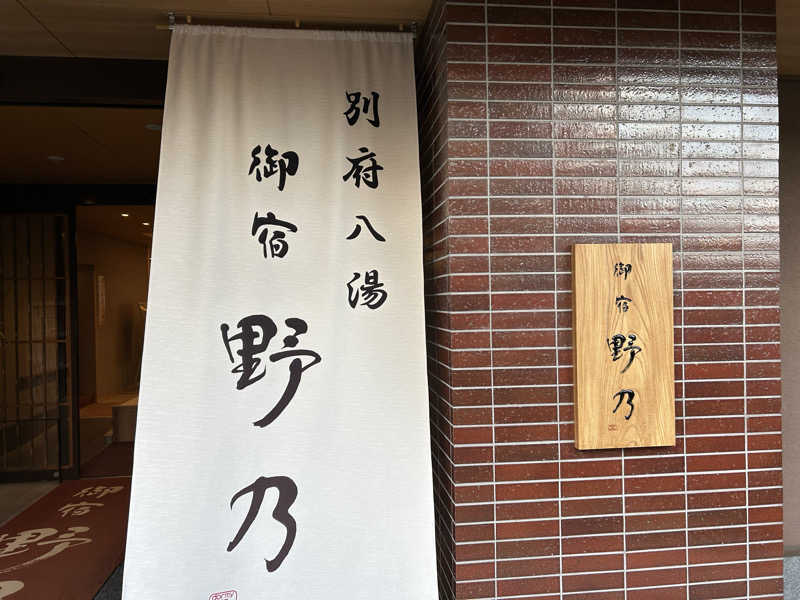 別府八湯
御宿
野乃
御宿
野乃
御宿
野